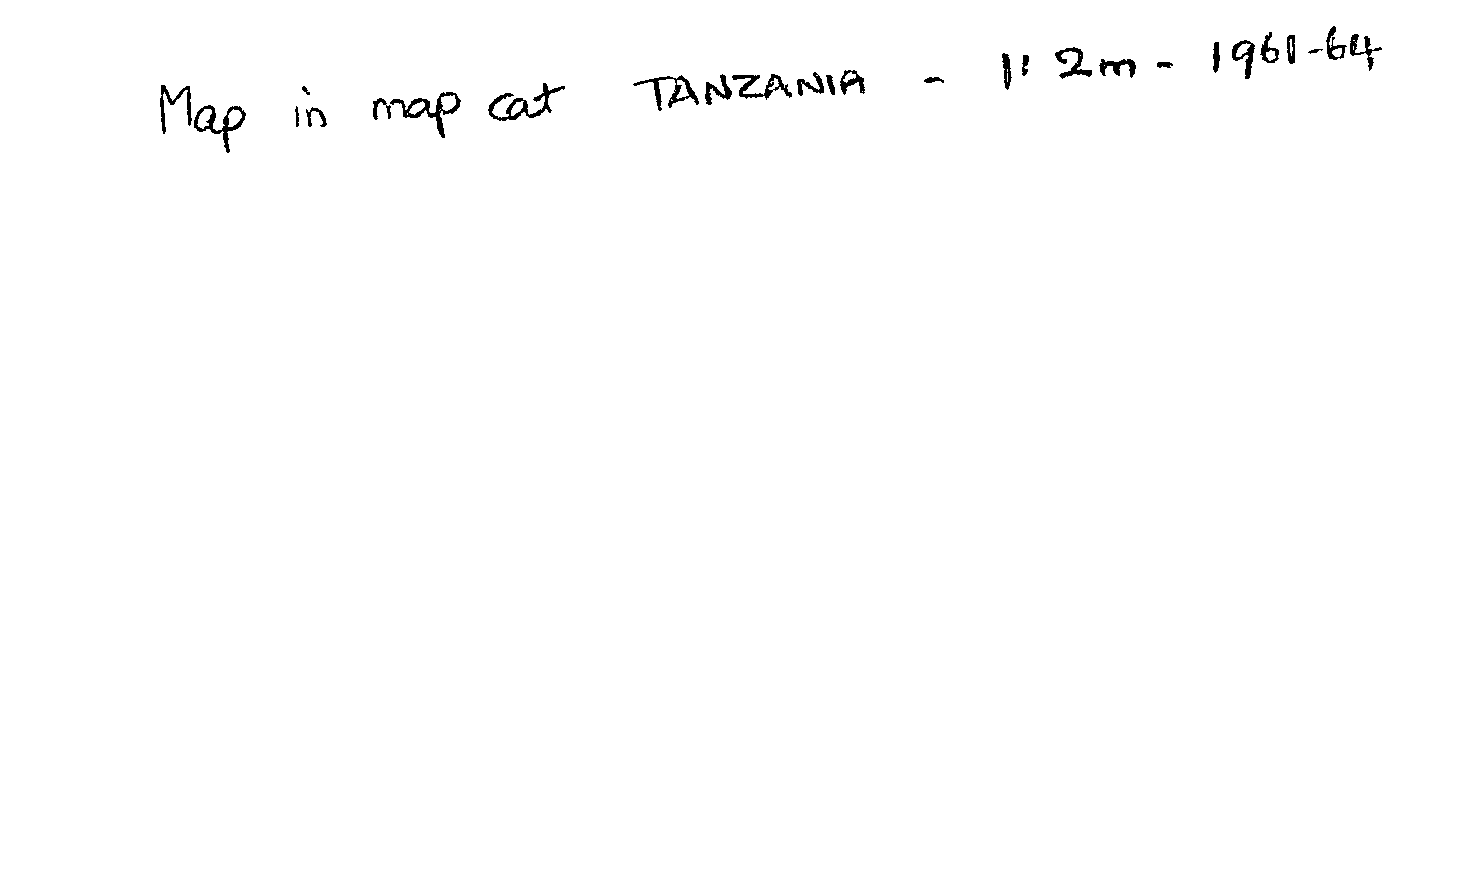 Map in map cat TANZANIA - 1:2m - 1961-64